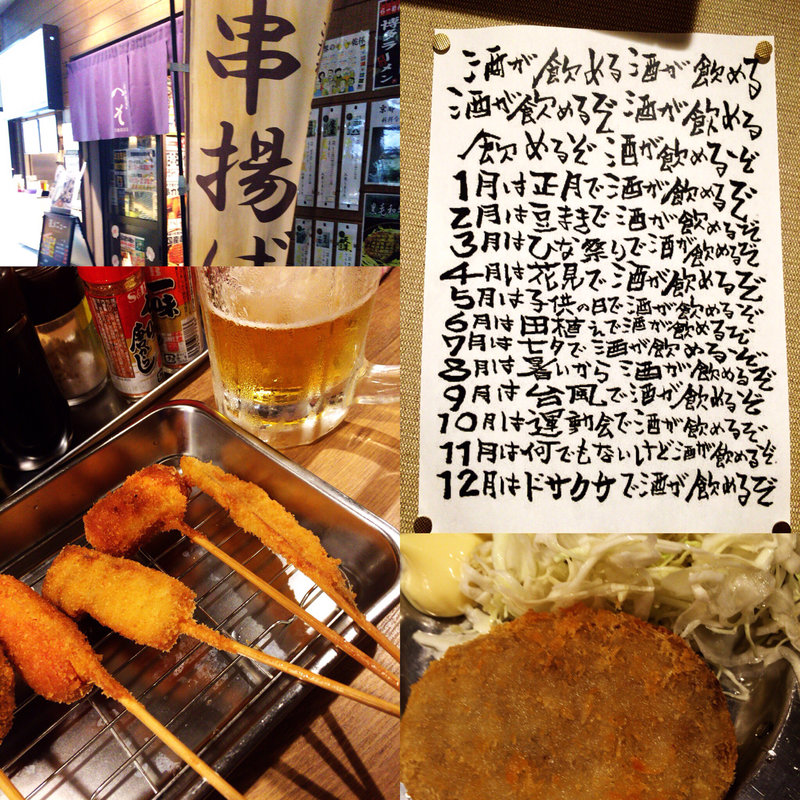 串揚げ
へそ
博多ラーメン
一味
酒が飲める酒が飲める
酒が飲めるぞ酒が飲める
飲めるぞ酒が飲めるぞ
1月は正月で酒が飲めるぞ
2月は豆まきで酒が飲めるぞ
3月はひな祭りで酒が飲めるぞ
4月は花見で酒が飲めるぞ
5月は子供の日で酒が飲めるぞ
6月は田植えで酒が飲めるぞ
7月は七夕で酒が飲めるぞ
8月は暑いから酒が飲めるぞ
9月は台風で酒が飲めるぞ
10月は運動会で酒が飲めるぞ
11月は何でもないけど酒が飲めるぞ
12月はドサクサで酒が飲めるぞ